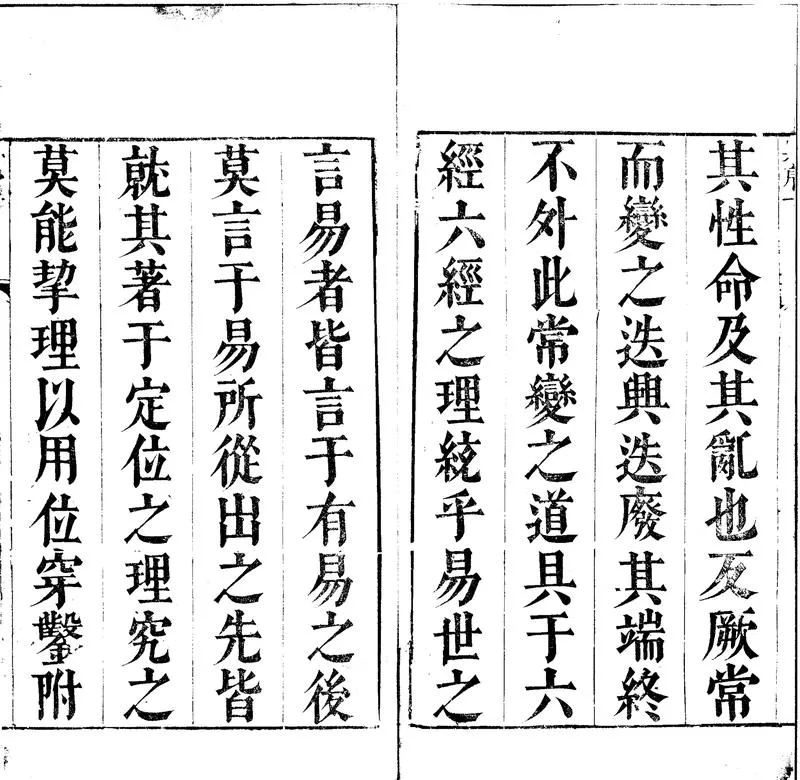 其性命及其亂也反厥常
而變之迭興迭廢其端終
不外此常變之道具于六
經六經之理統乎易世之
言易者皆言于有易之後
莫言于易所從出之先皆
就其著于定位之理究之
莫能挈理以用位穿鑿附